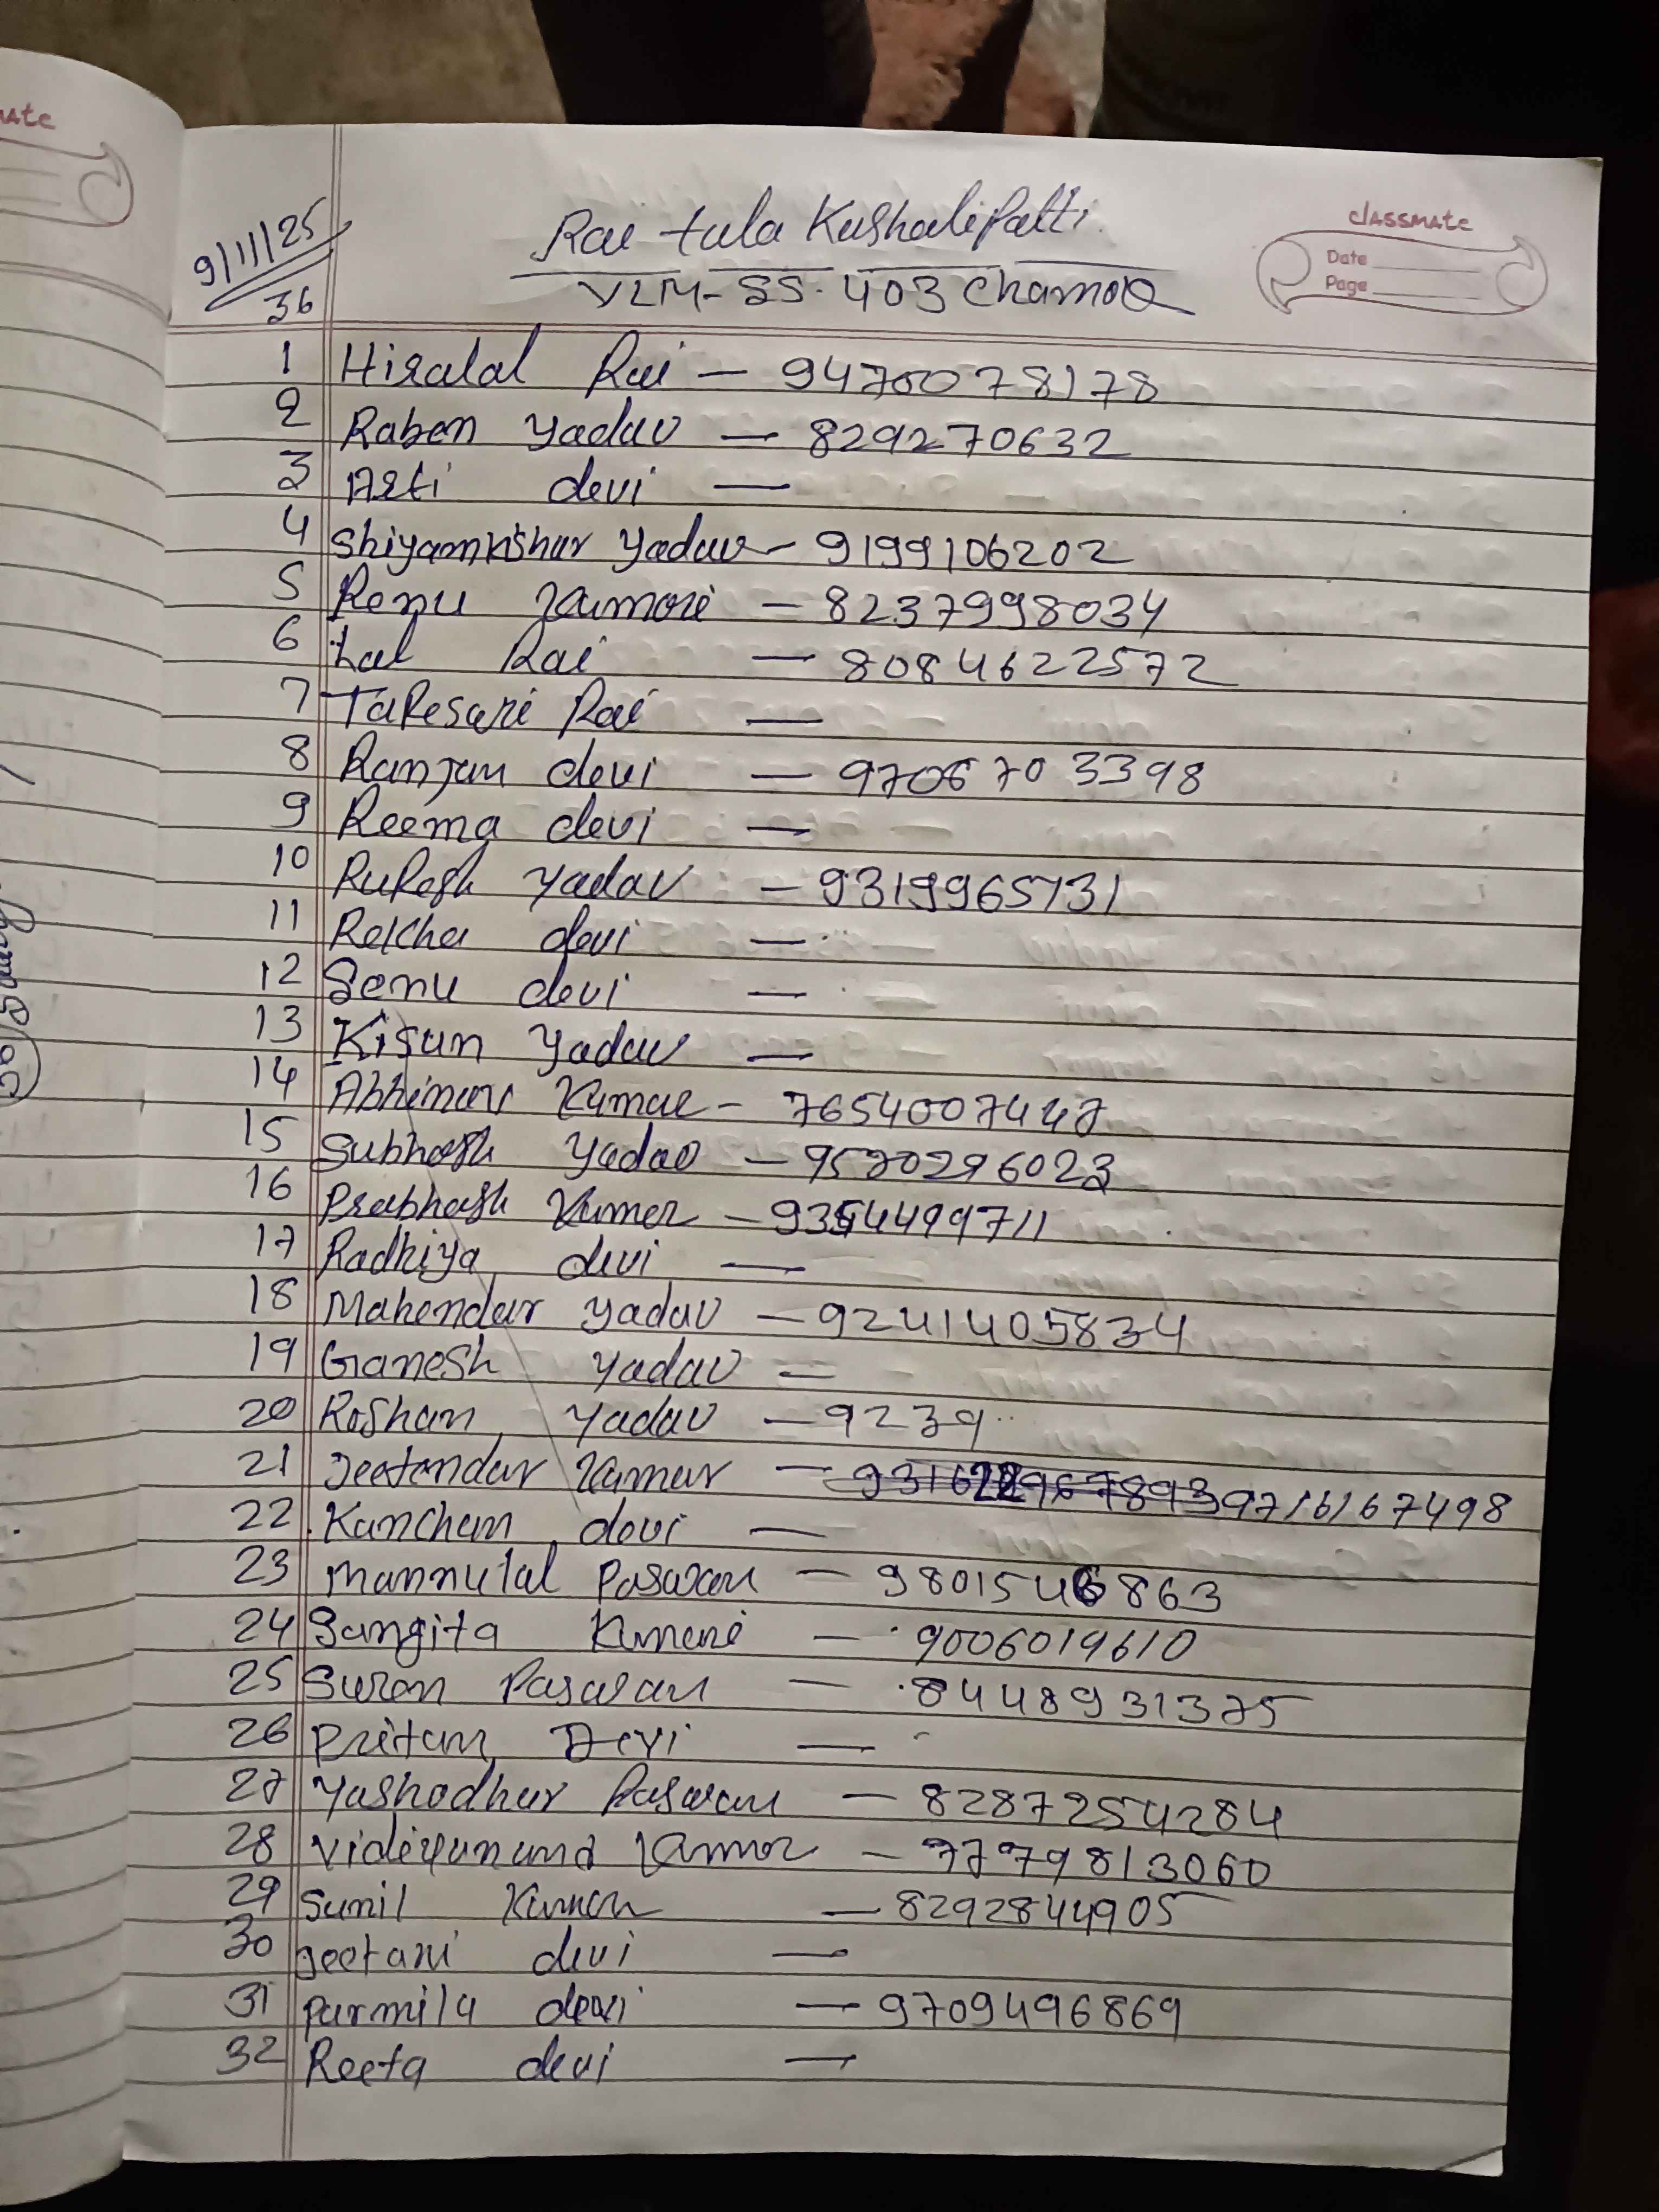 Rai tula Kushalipatti
classmate
9/11/25
Date
Page
36
VLM-SS-403 Chamor
1 Hiralal Rai — 9470078178
2 Raben Yadav — 829270632
3 Arti devi —
4 Shiyamkishur Yadav - 9199106202
5 Renu Kumari — 8237998034
6 Lal Rai — 8084622572
7 Takesari Rai —
8 Ranjan devi — 9706703398
9 Reema devi —
10 Rukesh Yadav — 9319965131
11 Rekha devi —
12 Senu devi —
13 Kisun Yadav —
14 Abhinav Kumar - 7654007447
15 Subhash Yadav — 9570296023
16 Prabhash Kumar — 9354499711
17 Radhiya devi —
18 Mahendar Yadav — 9241405834
19 Ganesh Yadav —
20 Roshan Yadav — 9239
21 Jeetendar Kumar — 9716167498
22 Kanchan devi —
23 Mannulal Paswan — 9801546863
24 Sangita Kumari — 9006019610
25 Suren Paswan — 8448931375
26 Pritam Devi —
27 Yashodhar Paswan — 8287254284
28 Vidiyanand Kumar — 7779813060
29 Sunil Kumar — 8292844905
30 Jeetani devi —
31 Parmila devi — 9709496869
32 Reeta devi —